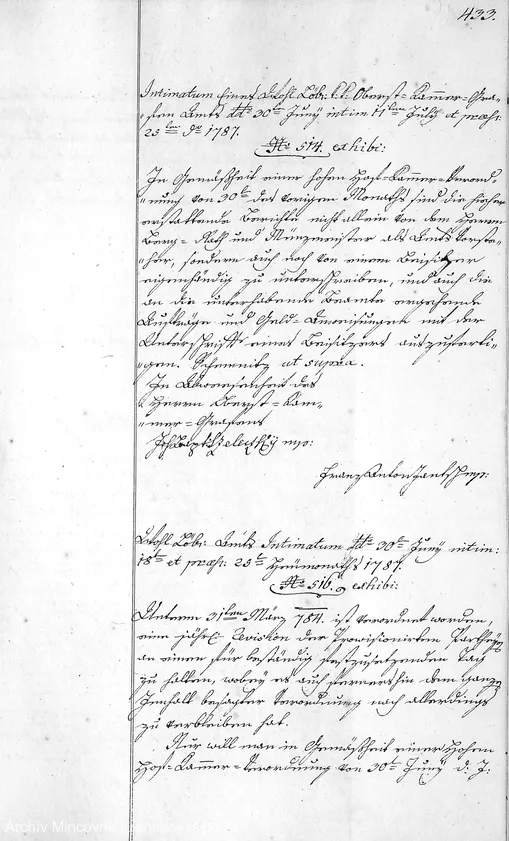 433.
Intimatum Eines Wohl Löb: k: k: Oberst-Kammer-Gra-
"fen Amts dd° 30ten Juny intim 11ten July et præs:
25ten d° 1787.
N° 514. exhibi:
In Gemäßheit einer hohen Hof-Kammer-Verord-
"nung von 30ten des vorigen Monaths sind die hieher
erstattende Berichte nicht allein von dem Herrn
Berg-Rath und Münzmeister als Amts Vorste-
"her, sondern auch noch von einem Beisitzer
eigenhändig zu unterschreiben, und auch die
an die unterhabende Beamte ergehende
Aufträge und Geld-Anweisungen mit der
Unterschrift eines Beisitzers auszuferti-
"gen. Schemnitz ut supra.
In Abwesenheit des
Herrn Oberst-Kam-
"mer-Grafens
Joh: Bapt: mp:
Franz Anton mp:
Wohl Löbl: Amts Intimatum dd° 30ten Juny intim:
18ten et præs: 25ten Heumonaths 1787.
N° 516. exhibi:
Unterm 31ten März 784. ist verordnet worden,
eine jährl: Revision der Provisionirten Partheyen
an einem für beständig festzusetzenden Tag
zu halten, wobey es auch fernershin dem ganzen
Innhalt besagter Verordnung nach allerdings
zu verbleiben hat.
Nur will man in Gemäßheit einer Hohen
Hof-Kammer-Verordnung von 30ten Juny d: J:
Archiv Mincovne